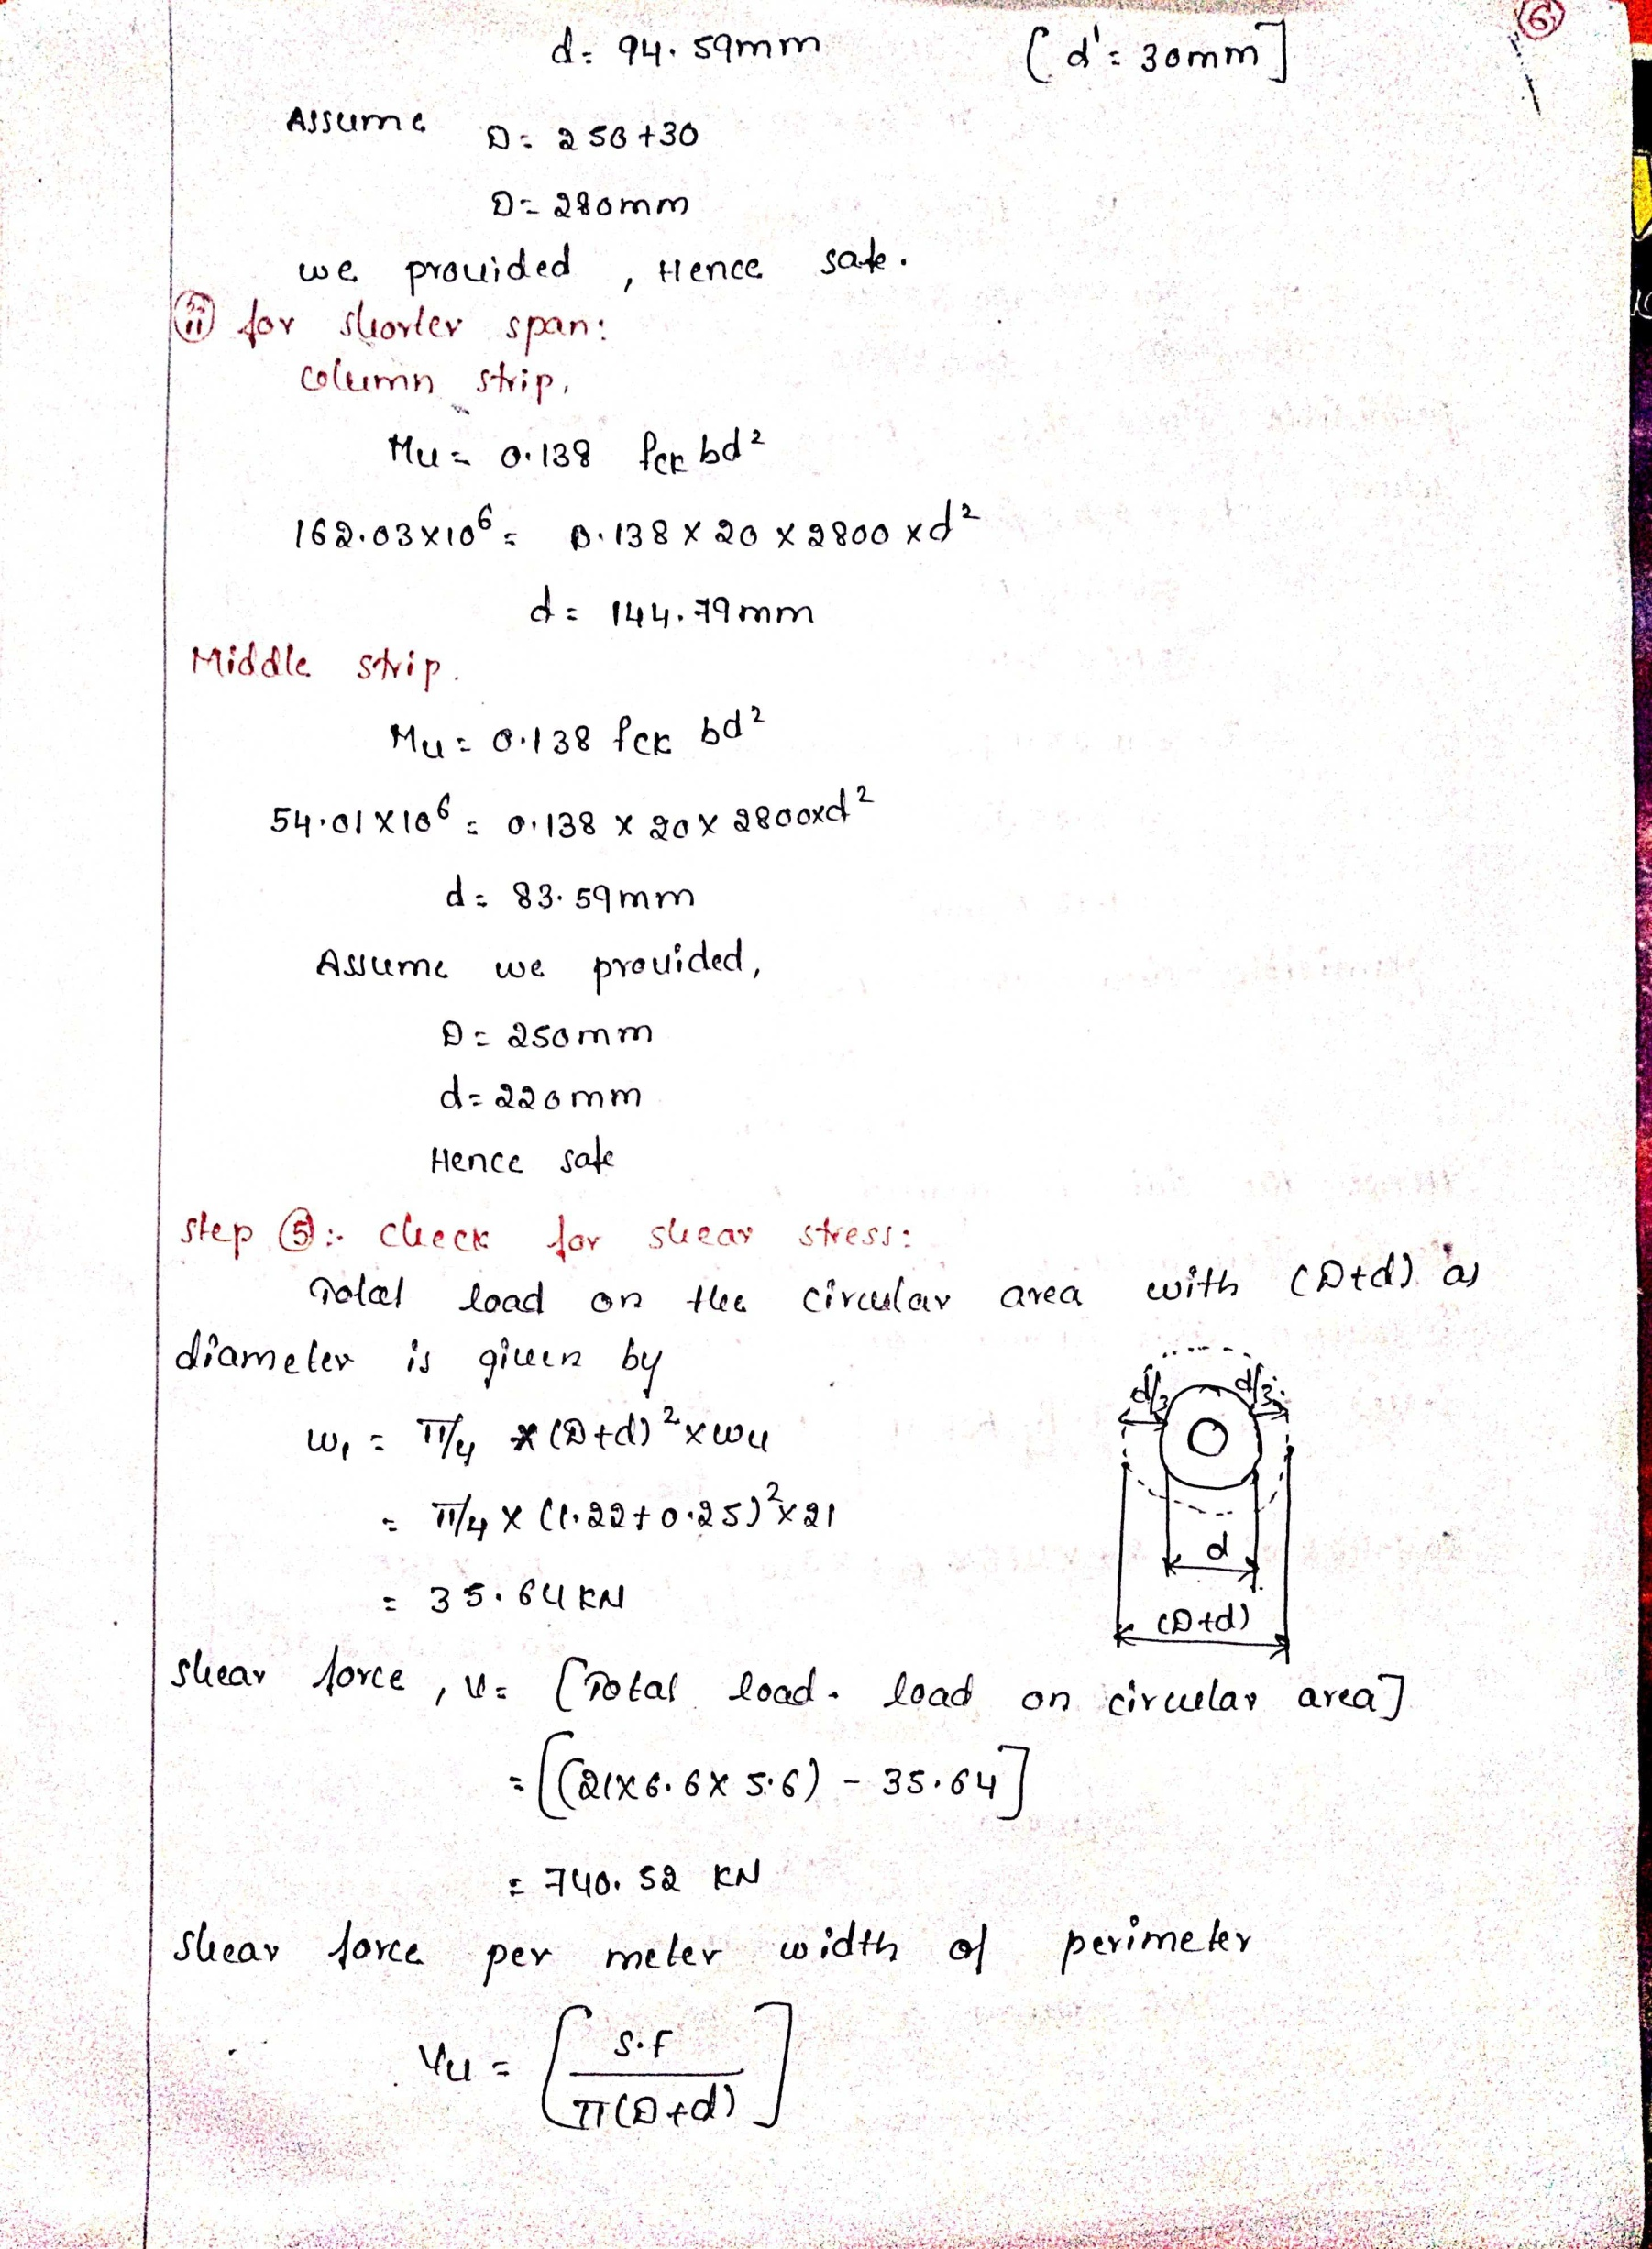 6
d = 94.59mm [d' = 30mm]
Assume D = 250+30
D = 280mm
we provided , Hence safe.
ii for shorter span:
column strip,
Mu = 0.138 fck bd²
162.03×10⁶ = 0.138 × 20 × 2800 × d²
d = 144.79mm
Middle strip.
Mu = 0.138 fck bd²
54.01×10⁶ = 0.138 × 20 × 2800×d²
d = 83.59mm
Assume we provided,
D = 250mm
d = 220mm
Hence safe
step 5:- check for shear stress:
Total load on the circular area with (D+d) as
diameter is given by
d/2 d/2
w₁ = π/4 × (D+d)² × wu
= π/4 × (1.22+0.25)² × 21
d
= 35.64 KN
(D+d)
shear force, V = [Total load - load on circular area]
= [(21×6.6×5.6) - 35.64]
= 740.52 KN
shear force per meter width of perimeter
Vu = [S.F / π(D+d)]